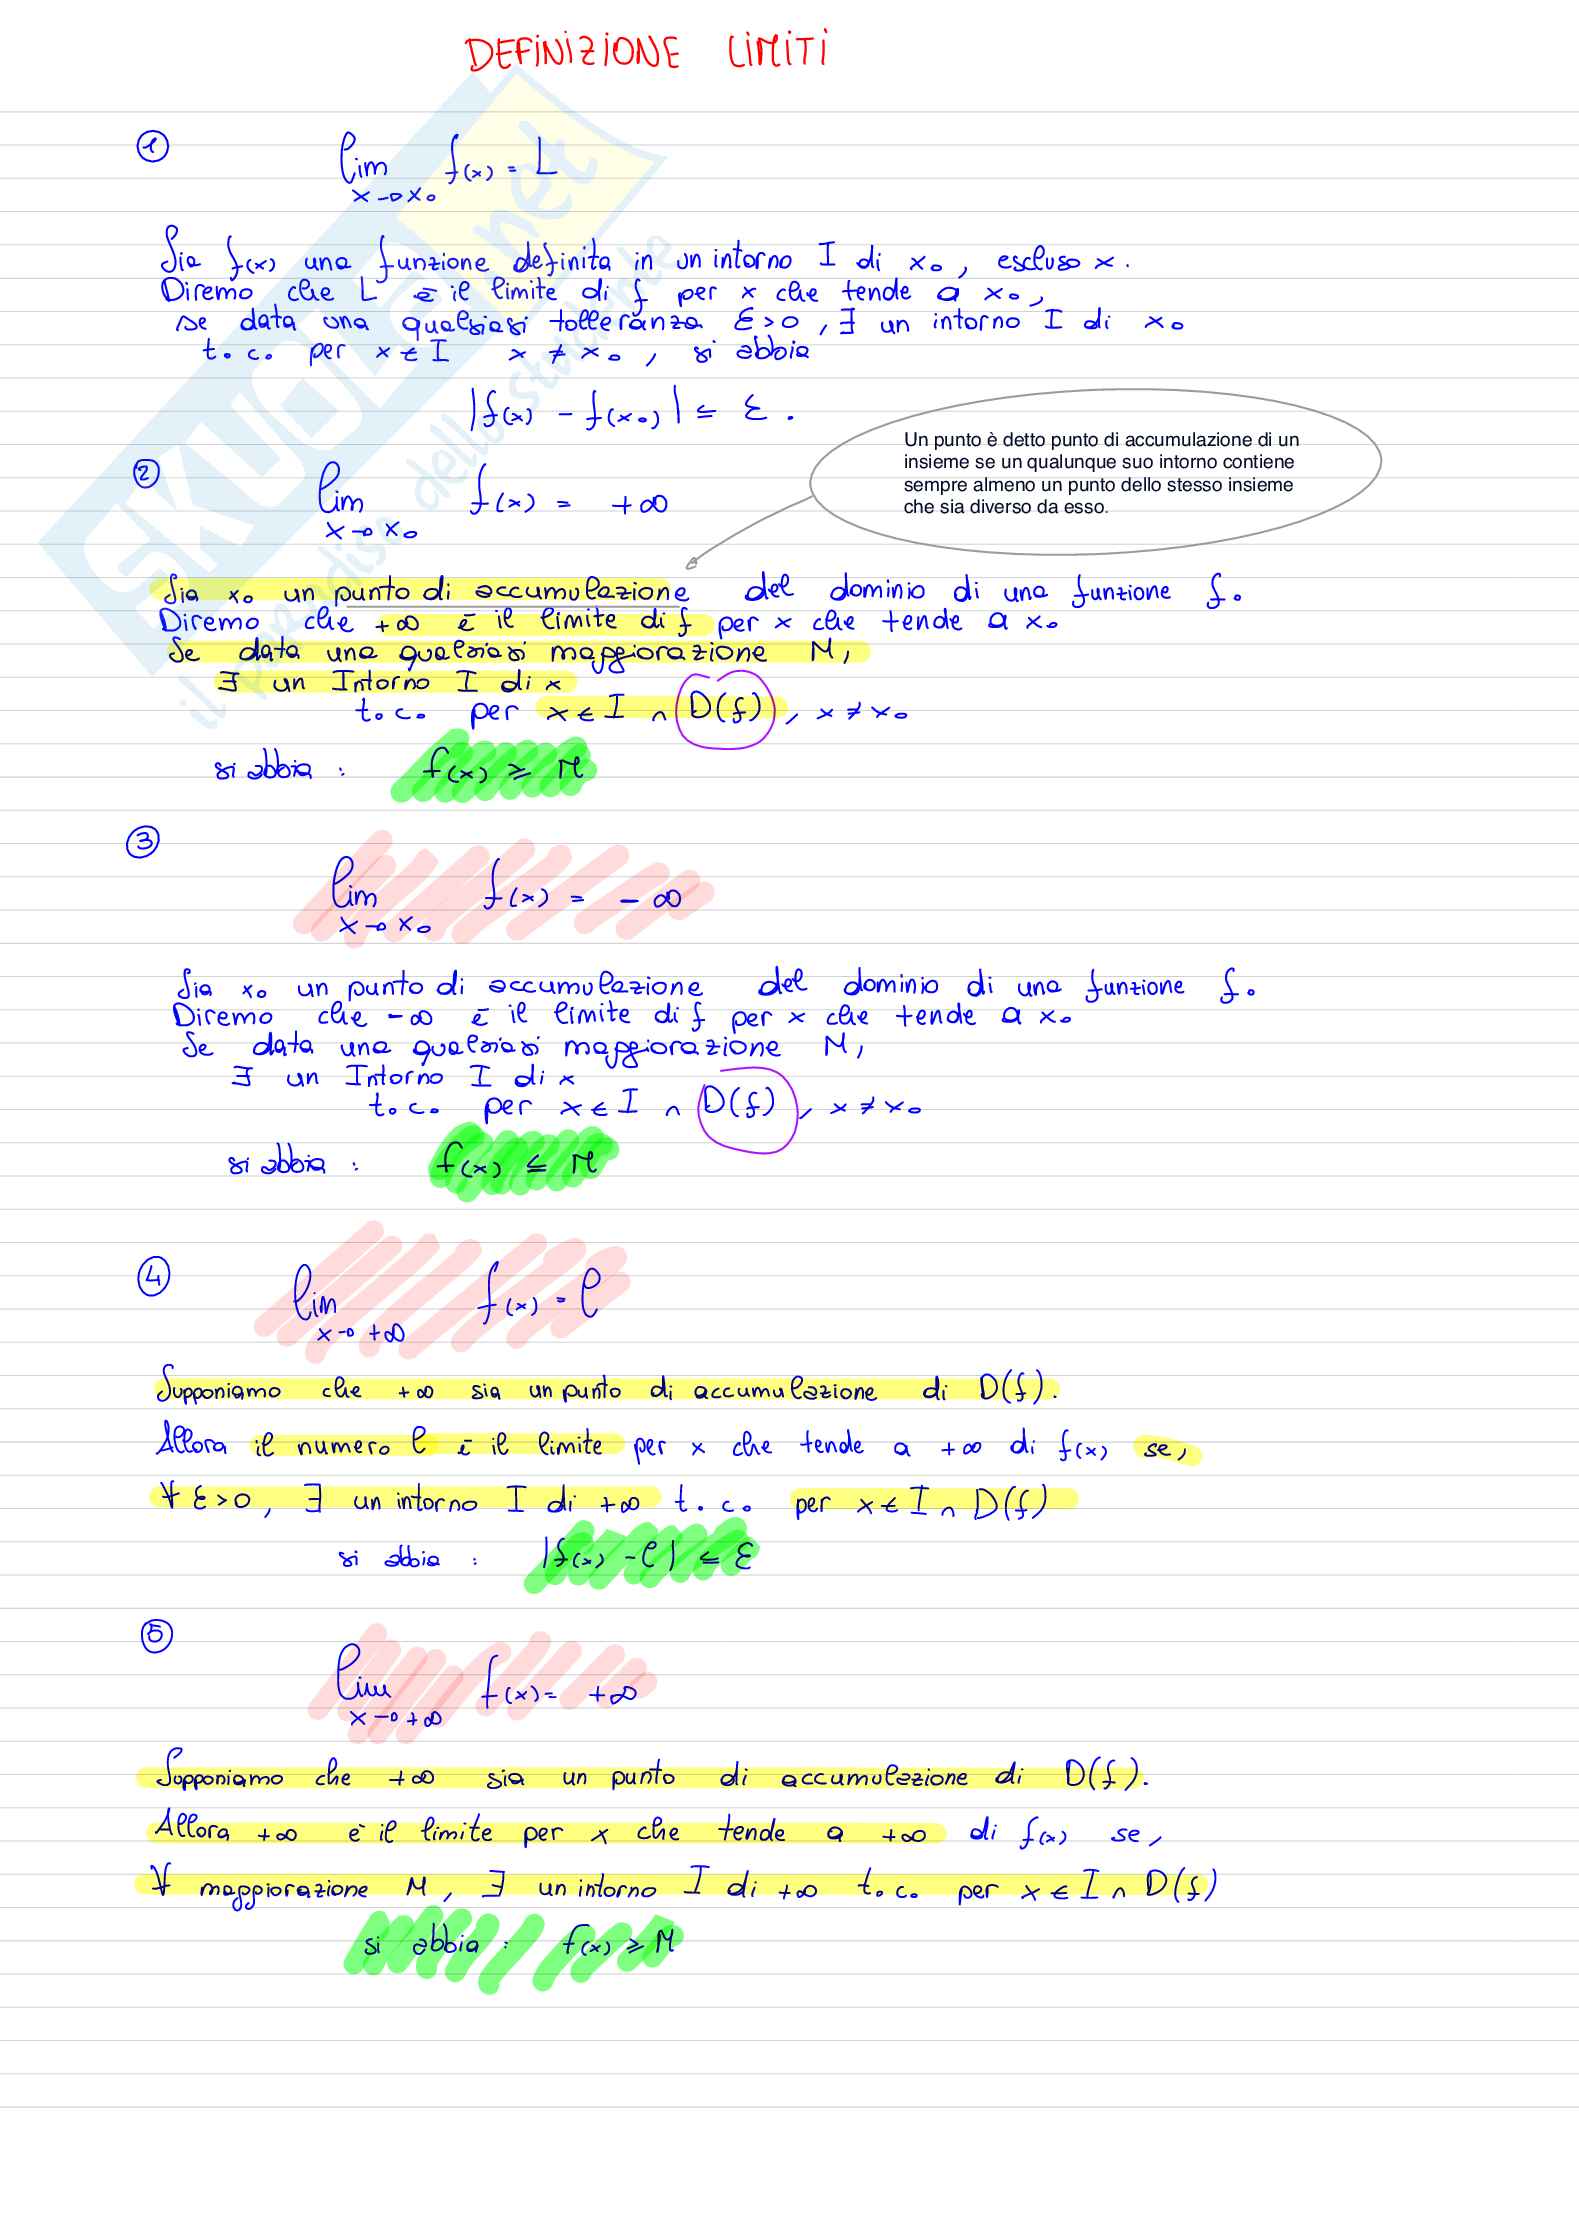 DEFINIZIONE LIMITI
1
lim f(x) = L
x→x₀
Sia f(x) una funzione definita in un intorno I di x₀, escluso x.
Diremo che L è il limite di f per x che tende a x₀,
se data una qualsiasi tolleranza ε>0, ∃ un intorno I di x₀
t.c. per x∈I x≠x₀, si abbia
|f(x) - f(x₀)| ≤ ε.
Un punto è detto punto di accumulazione di un
insieme se un qualunque suo intorno contiene
sempre almeno un punto dello stesso insieme
che sia diverso da esso.
2
lim f(x) = +∞
x→x₀
Sia x₀ un punto di accumulazione del dominio di una funzione f.
Diremo che +∞ è il limite di f per x che tende a x₀
Se data una qualsiasi maggiorazione M,
∃ un Intorno I di x
t.c. per x∈I ∩ D(f), x≠x₀
si abbia: f(x) ≥ M
3
lim f(x) = -∞
x→x₀
Sia x₀ un punto di accumulazione del dominio di una funzione f.
Diremo che -∞ è il limite di f per x che tende a x₀
Se data una qualsiasi maggiorazione M,
∃ un Intorno I di x
t.c. per x∈I ∩ D(f), x≠x₀
si abbia: f(x) ≤ M
4
lim f(x) = l
x→+∞
Supponiamo che +∞ sia un punto di accumulazione di D(f).
Allora il numero l è il limite per x che tende a +∞ di f(x) se,
∀ ε>0, ∃ un intorno I di +∞ t.c. per x∈I ∩ D(f)
si abbia: |f(x) - l| ≤ ε
5
lim f(x) = +∞
x→+∞
Supponiamo che +∞ sia un punto di accumulazione di D(f).
Allora +∞ è il limite per x che tende a +∞ di f(x) se,
∀ maggiorazione M, ∃ un intorno I di +∞ t.c. per x∈I ∩ D(f)
si abbia: f(x) ≥ M
SKUOLA.net
il paradiso dello studente